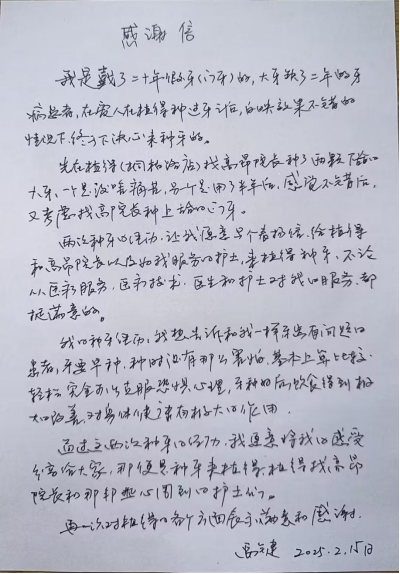 感谢信
我是戴了二十年假牙(门牙)的,大牙缺了二年的牙
病患者,在家人在植得种过牙之后,自映效果不错的
情况下,终于下决心来种牙的。
先在植得(桐柏路店)找高昂院长种了两颗下
大牙,一个是没啥痛苦,另一个是用了半年后,感觉不错后,
又考虑找高院长种上门牙。
两次种牙的活动,让我愿意写个表扬信,给植得
和高昂院长以及如我服务的护士,来植得种牙,不论
从医疗服务,医疗技术,医生和护士对我的服务,都
挺满意的。
我的种牙活动,我想告诉和我一样牙患有问题的
患者,牙要早种,种时没有那么害怕,基本上算比较
轻松,完全可以克服恐惧心理,牙种的后饮食得到极
大的改善,对身体健康有极大的作用。
通过这两次种牙的经历,我愿意将我的感受
分享给大家,那便是种牙来植得,植得找高昂
院长和那那些心周到的护士们。
再一次对植得的各个方面表示满意和感谢.
2025.2.15日